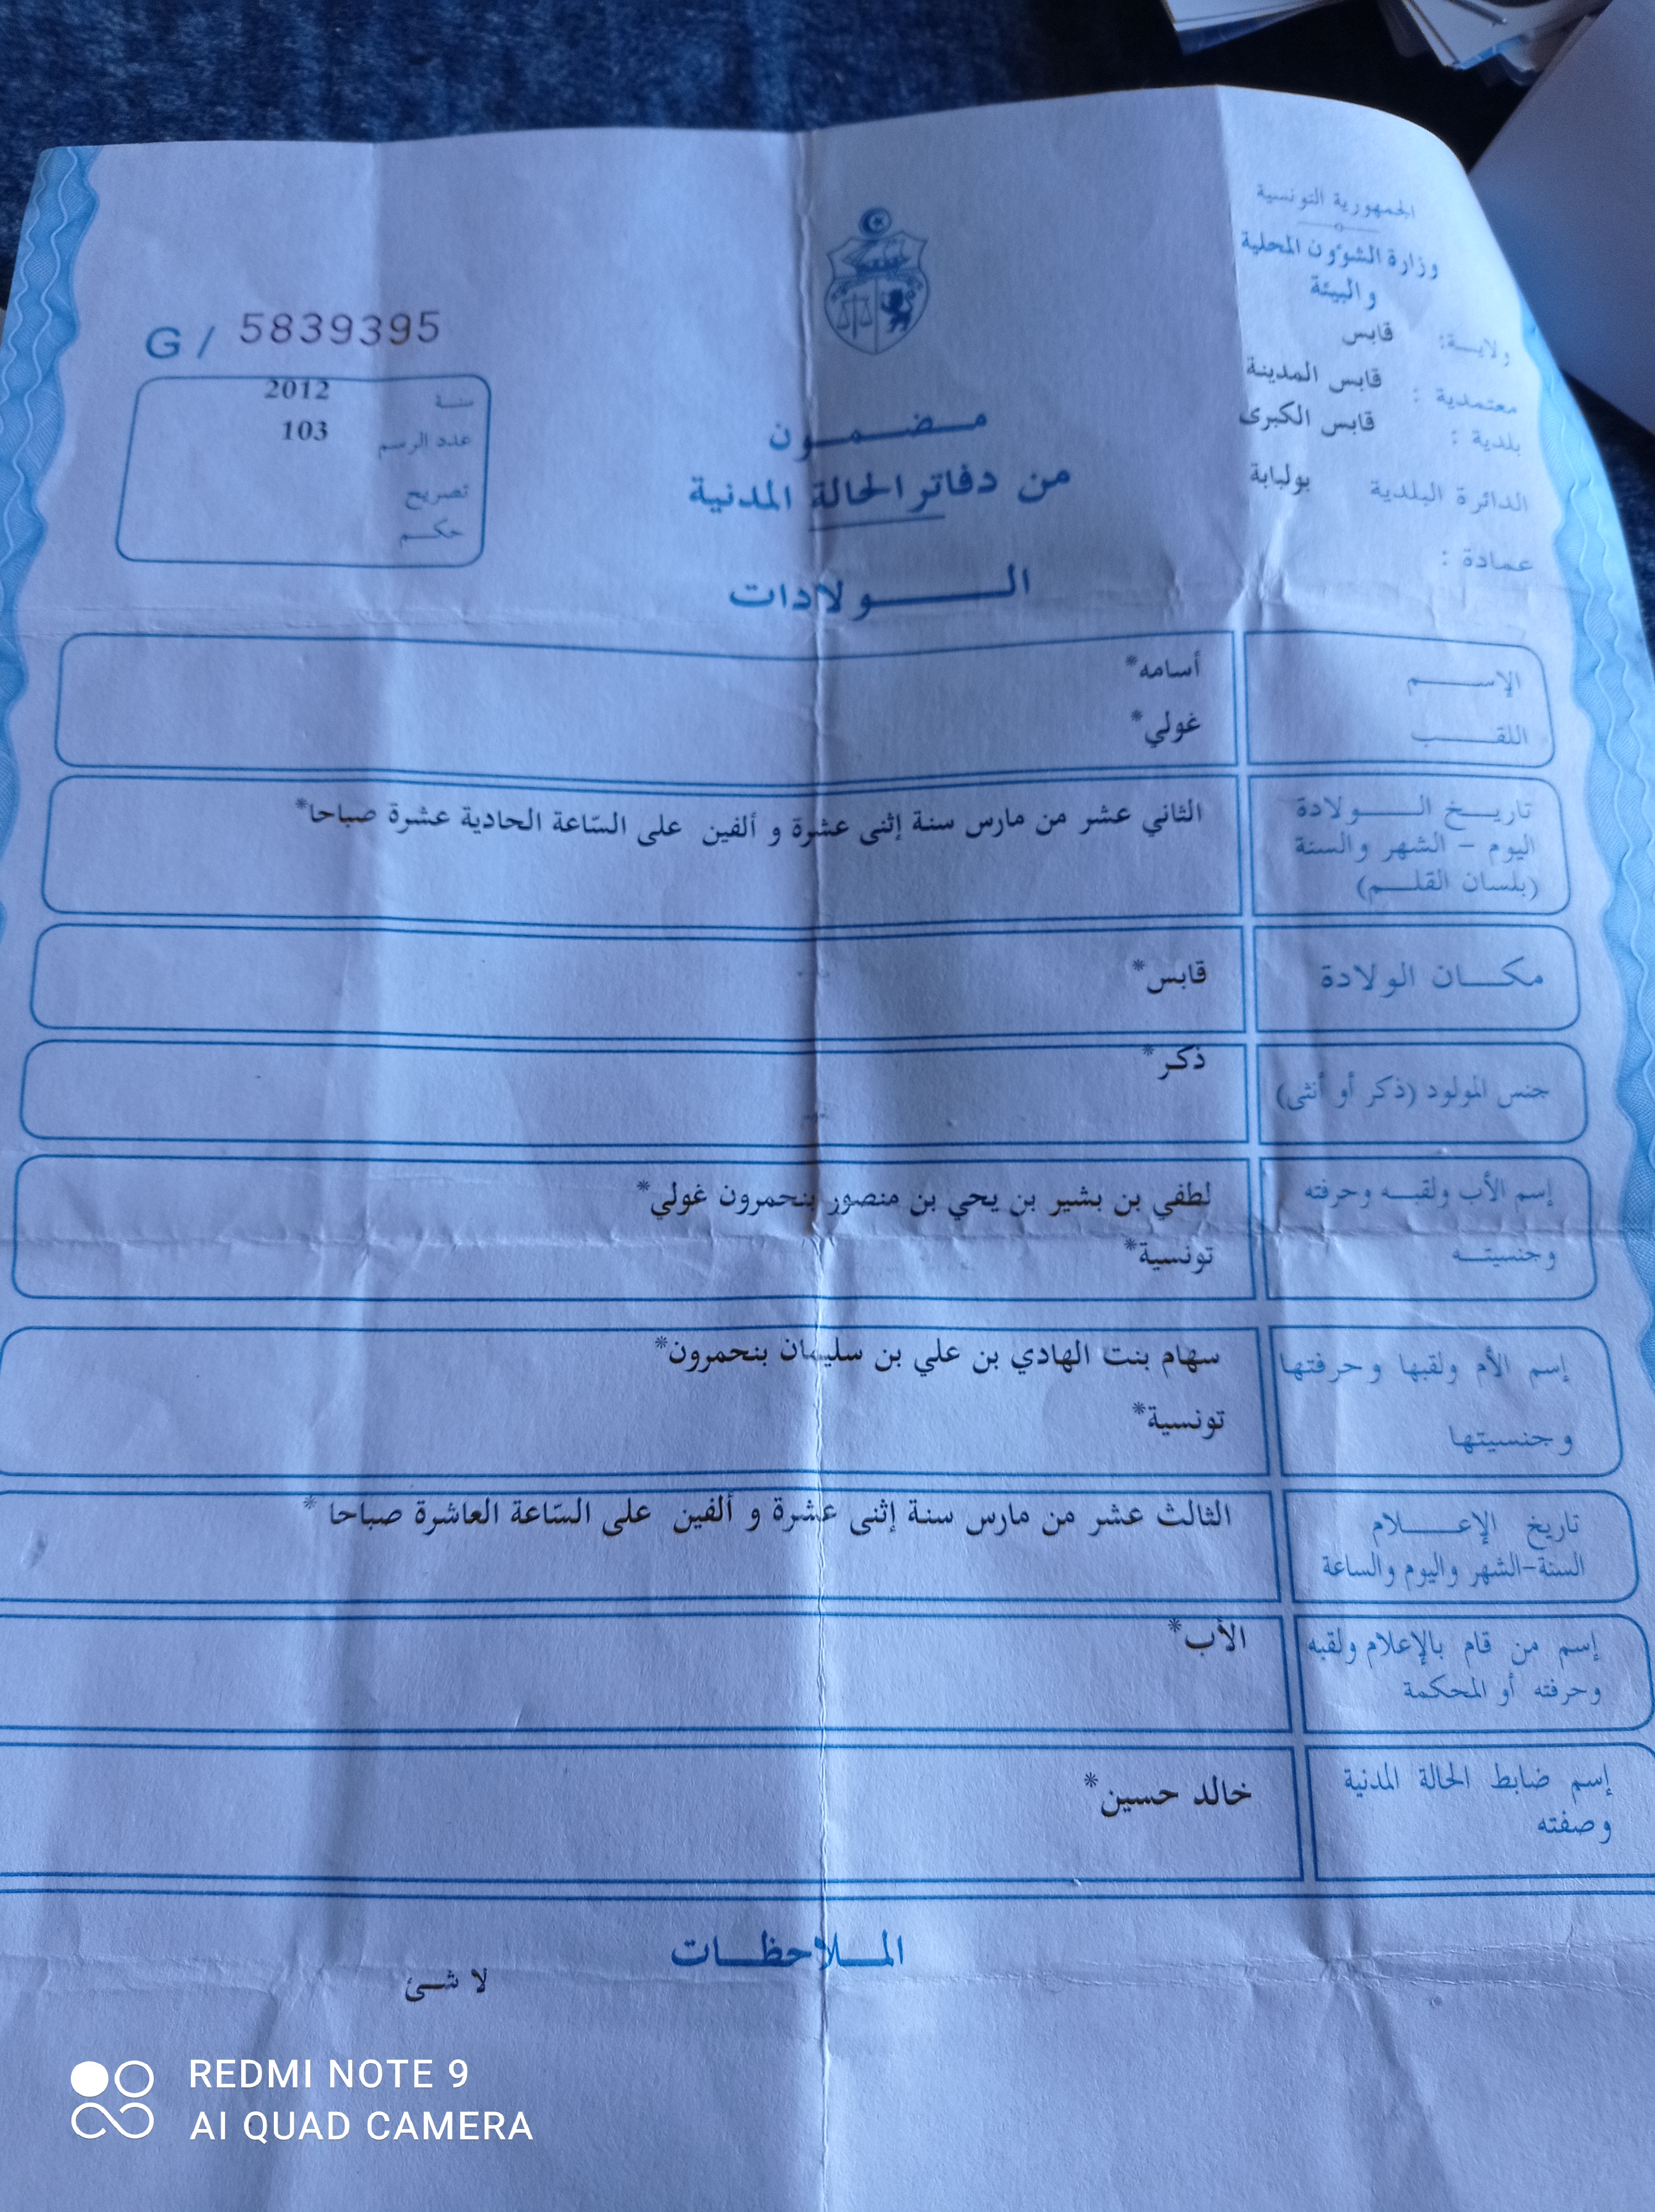 الجمهورية التونسية
وزارة الشؤون المحلية
والبيئة
ولايــة: قابس
معتمدية : قابس المدينة
بلدية : قابس الكبرى
الدائرة البلدية بولبابة
عمادة :
G / 5839395
سنة 2012
عدد الرسم 103
تصريح
حكم
مضمون
من دفاتر الحالة المدنية
الولادات
الإسم أسامه*
اللقب غولي*
تاريخ الولادة
اليوم – الشهر والسنة
(بلسان القلم)
الثاني عشر من مارس سنة إثنى عشرة و ألفين على السّاعة الحادية عشرة صباحا*
مكان الولادة قابس*
جنس المولود (ذكر أو أنثى) ذكر*
إسم الأب ولقبه وحرفته لطفي بن بشير بن يحي بن منصور بنحمرون غولي*
وجنسيته تونسية*
إسم الأم ولقبها وحرفتها سهام بنت الهادي بن علي بن سليمان بنحمرون*
وجنسيتها تونسية*
تاريخ الإعلام
السنة-الشهر واليوم والساعة
الثالث عشر من مارس سنة إثنى عشرة و ألفين على السّاعة العاشرة صباحا *
إسم من قام بالإعلام ولقبه
وحرفته أو المحكمة
الأب*
إسم ضابط الحالة المدنية
وصفته
خالد حسين*
الملاحظات
لا شئ
REDMI NOTE 9
AI QUAD CAMERA